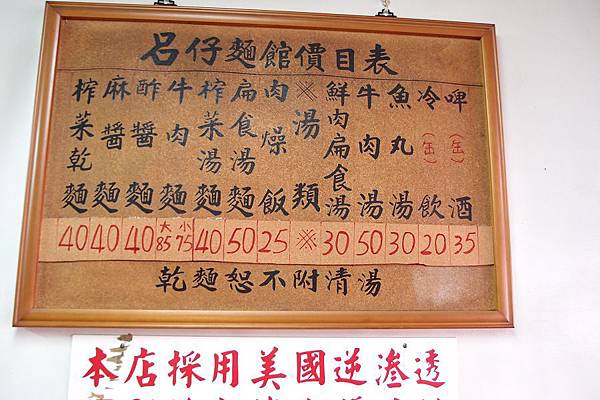 呂仔麵館價目表
榨菜乾麵 40
麻醬麵 40
酢醬麵 40
牛肉麵 大85 小75
榨菜湯麵 40
扁食湯麵 50
肉燥飯 25
※湯類※
鮮肉扁食湯 30
牛肉湯 50
魚丸湯 30
冷(缶)飲 20
啤(缶)酒 35
乾麵恕不附清湯
本店採用美國逆滲透